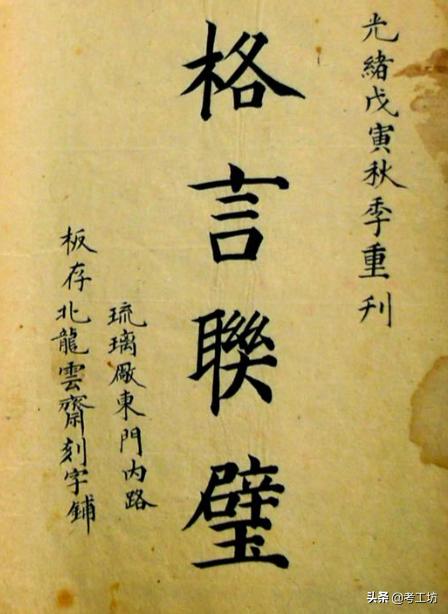 光緒戊寅秋季重刋
格言聯璧
琉璃厰東門内路
板存北龍雲齋刻字鋪
头条 @考工坊